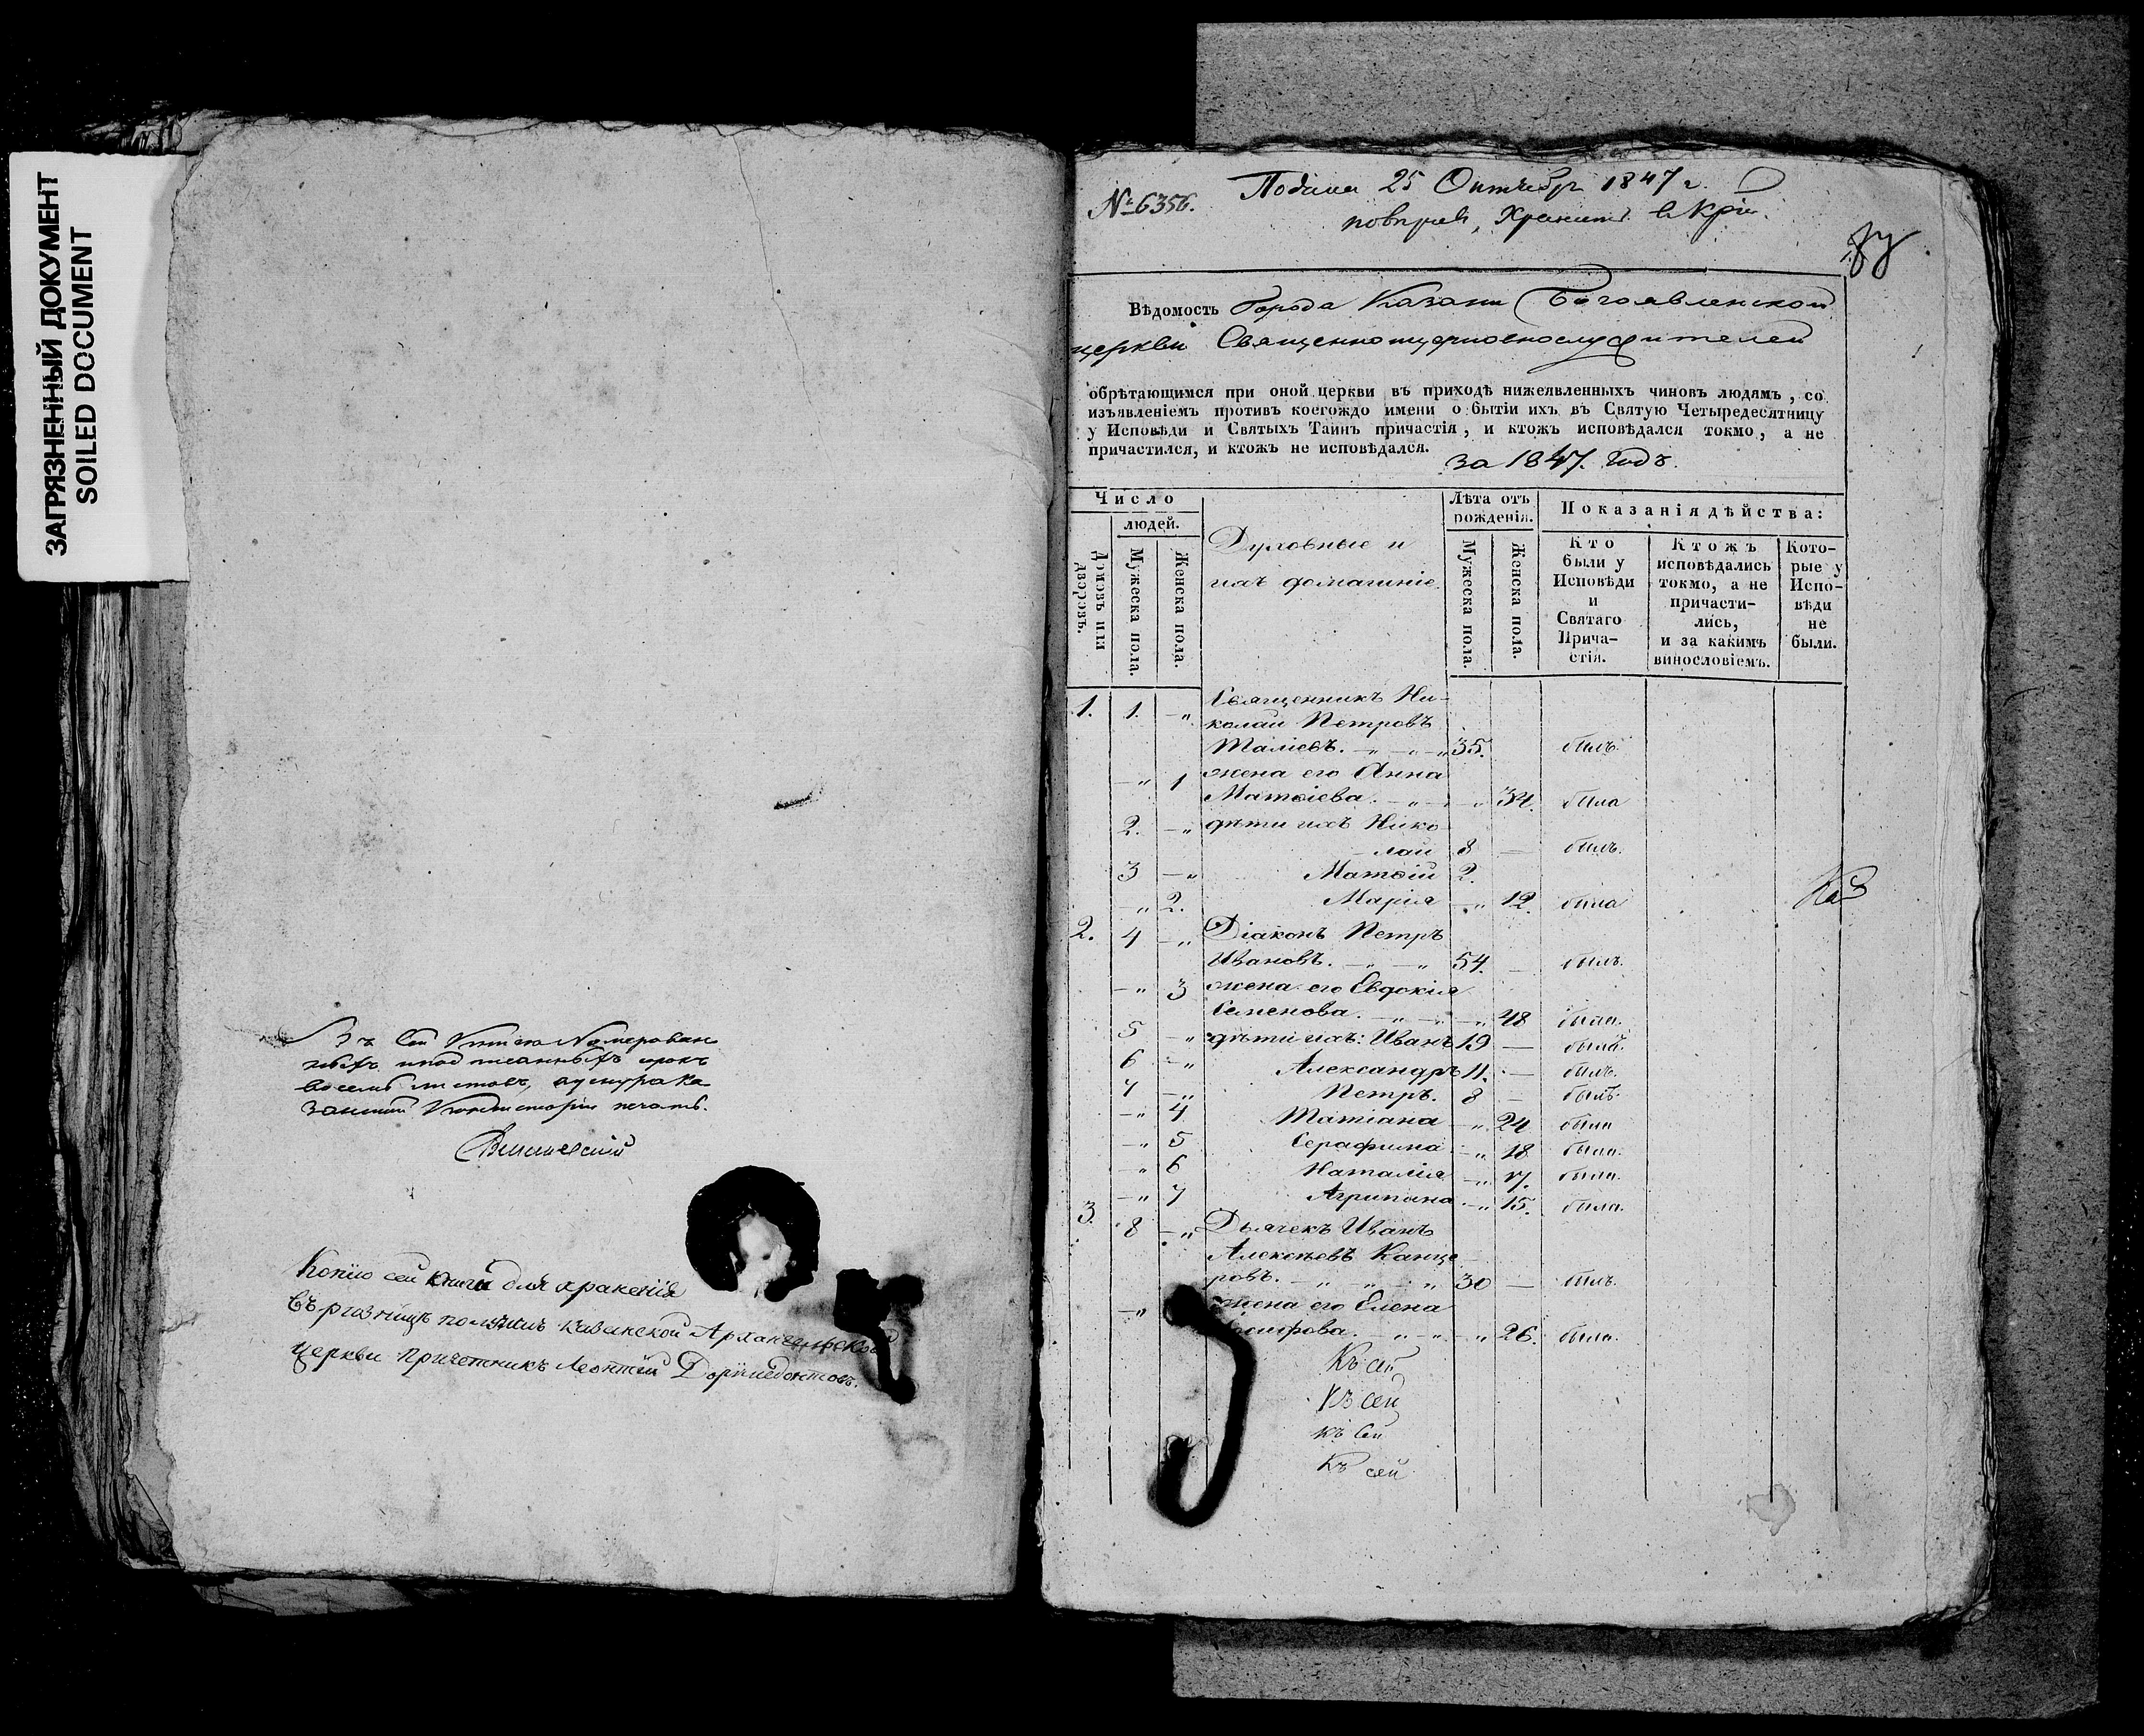 ЗАГРЯЗНЕННЫЙ ДОКУМЕНТ
SOILED DOCUMENT
Въ Сей Книге Номерован
ныхъ подписанныхъ сорокъ
восемь листовъ,
Консисторіи печать.
Копію сей книги для храненія
въ ризницѣ получилъ Казанской Архангельской
церкви причетникъ Леонтей Доримедонтовъ.
№ 6356.
Подана 25 Октября 1847 г.
Вѣдомость Города Казани Богоявленской
церкви Священноцерковнослужителей
обрѣтающимся при оной церкви въ приходѣ нижеявленныхъ чиновъ людямъ, со
изъявленіемъ противъ коегождо имени о бытіи ихъ въ Святую Четыредесятницу
у Исповѣди и Святыхъ Таинъ причастія, и ктожъ исповѣдался токмо, а не
причастился, и ктожъ не исповѣдался.
за 1847. годъ.
Число
людей.
Домовъ или дворовъ.
Мужеска пола.
Женска пола.
Духовные и
ихъ домашніе
Лѣта отъ рожденія.
Мужеска пола.
Женска пола.
Показанія дѣйства:
Кто были у Исповѣди и Святаго Прича-стія.
Ктожъ исповѣдались токмо, а не причасти-лись, и за какимъ винословіемъ.
Кото-рые у Испо-вѣди не были.
1. 1. -„ Священникъ Ни-
колай Петровъ
Таліевъ. -„ -„ -„ 35. былъ.
-„ 1 жена его Анна
Матѳіева. -„ - -„ 34. была
2. -„ дѣти ихъ Нико-
лай 8 — былъ.
3 -„ Матѳій 2.
-„ 2. Марія -„ 12. была
2. 4 -„ Діаконъ Петръ
Ивановъ. -„ -„ 54. — былъ.
-„ 3 жена его Евдокія
Семенова. -„ -„ -„ 48 была.
5 -„ дѣти ихъ: Иванъ 19 — былъ.
6 -„ Александръ 11. — былъ.
7 -„ Петръ. 8 — былъ.
-„ 4 Татіана -„ 24 была
-„ 5 Серафима -„ 18 была.
-„ 6 Наталія -„ 17. была.
-„ 7 Агрипина -„ 15. была.
3. 8 -„ Дьячекъ Иванъ
Алексѣевъ Канце
ровъ. -„ „ -„ 30 — былъ.
-„ жена его Елена
„ -„ -„ 26. была.
Къ сей
Къ сей
къ сей
Къ сей